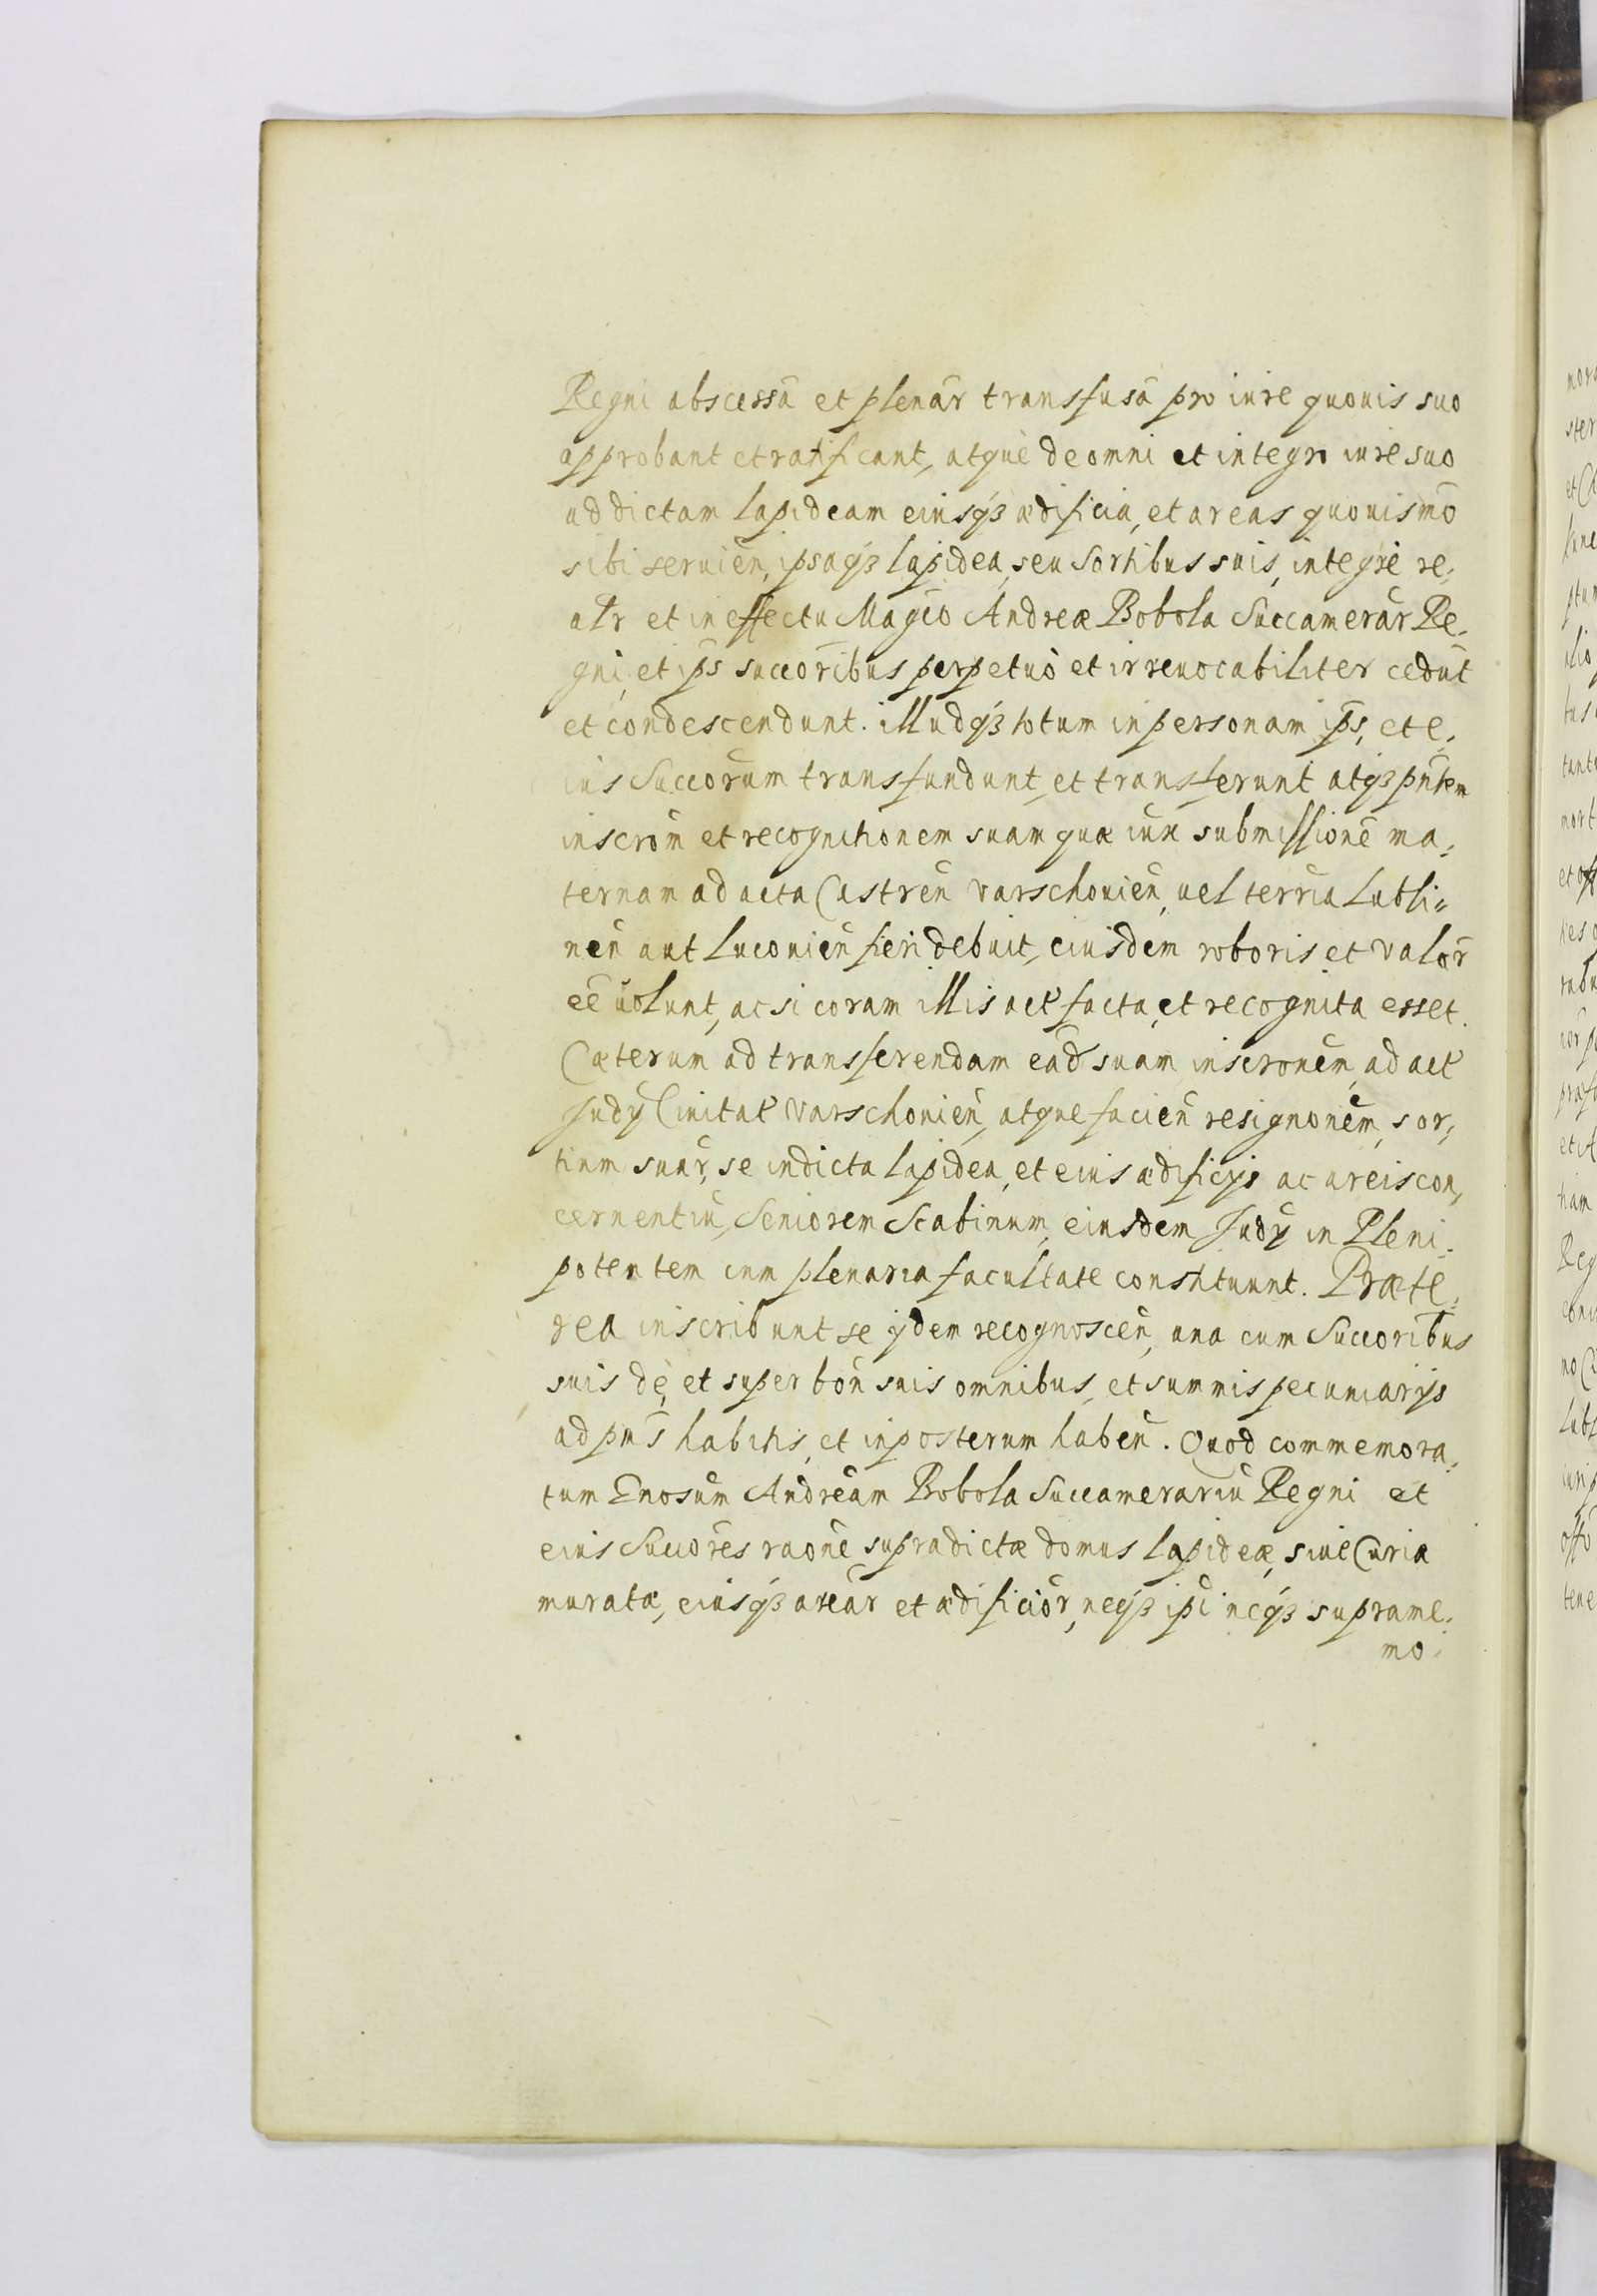 Regni abscessā et plenār transfusā pro iure quouis suo
approbant et ratificant, atquè de omni et integro iure suo
ad dictam lapideam eiusqꝫ ædificia, et areas quouismō
sibi seruien̄, ipsaqꝫ lapidea, seu sortibus suis, integrè re:
alr̄ et in effectu Magc̄o Andreæ Bobola Succamerār Re:
gni, et ip̄s succor̄ibus perpetuò et irreuocabiliter cedūt
et condescendunt. illudqꝫ totum in personam ip̄s, et e:
ius Succor̄um transfundunt, et transferunt atqꝫ pn̄tem
inscrōm et recognitionem suam quæ iux submissionē ma:
ternam ad acta Castren̄ Varschouien̄, uel terr̄ia Lubli=
nen̄ aut Luconien̄ fieri debuit, eiusdem roboris et valōr
eē uolunt, ac si coram illis act facta, et recognita esset.
Cæterum ad transferendam eād suam inscronēm, ad act
Judÿ Ciuitat Varschouien̄, atque facien̄ resignonēm, sor:
tium suar̄, se in dicta lapidea, et eius ædificijs ac areis con,
cernentiū, Seniorem Scabinum, eiusdem Judÿ in Pleni:
potentem cum plenaria facultate constituunt. Præte:
rea inscribunt se ijdem recognoscen̄, una cum Succor̄ibus
suis dè, et super bon̄ suis omnibus, et summis pecuniarijs
ad pn̄s habitis, et inposterum haben̄. Quod commemora:
tum Gnosūm Andreām Bobola Succamerariū Regni et
eius Succōres raōne supradictæ domus lapideæ, siue Curia
murata, eiusqꝫ areār et ædificiōr, neqꝫ ip̄i neqꝫ suprame:
mo: